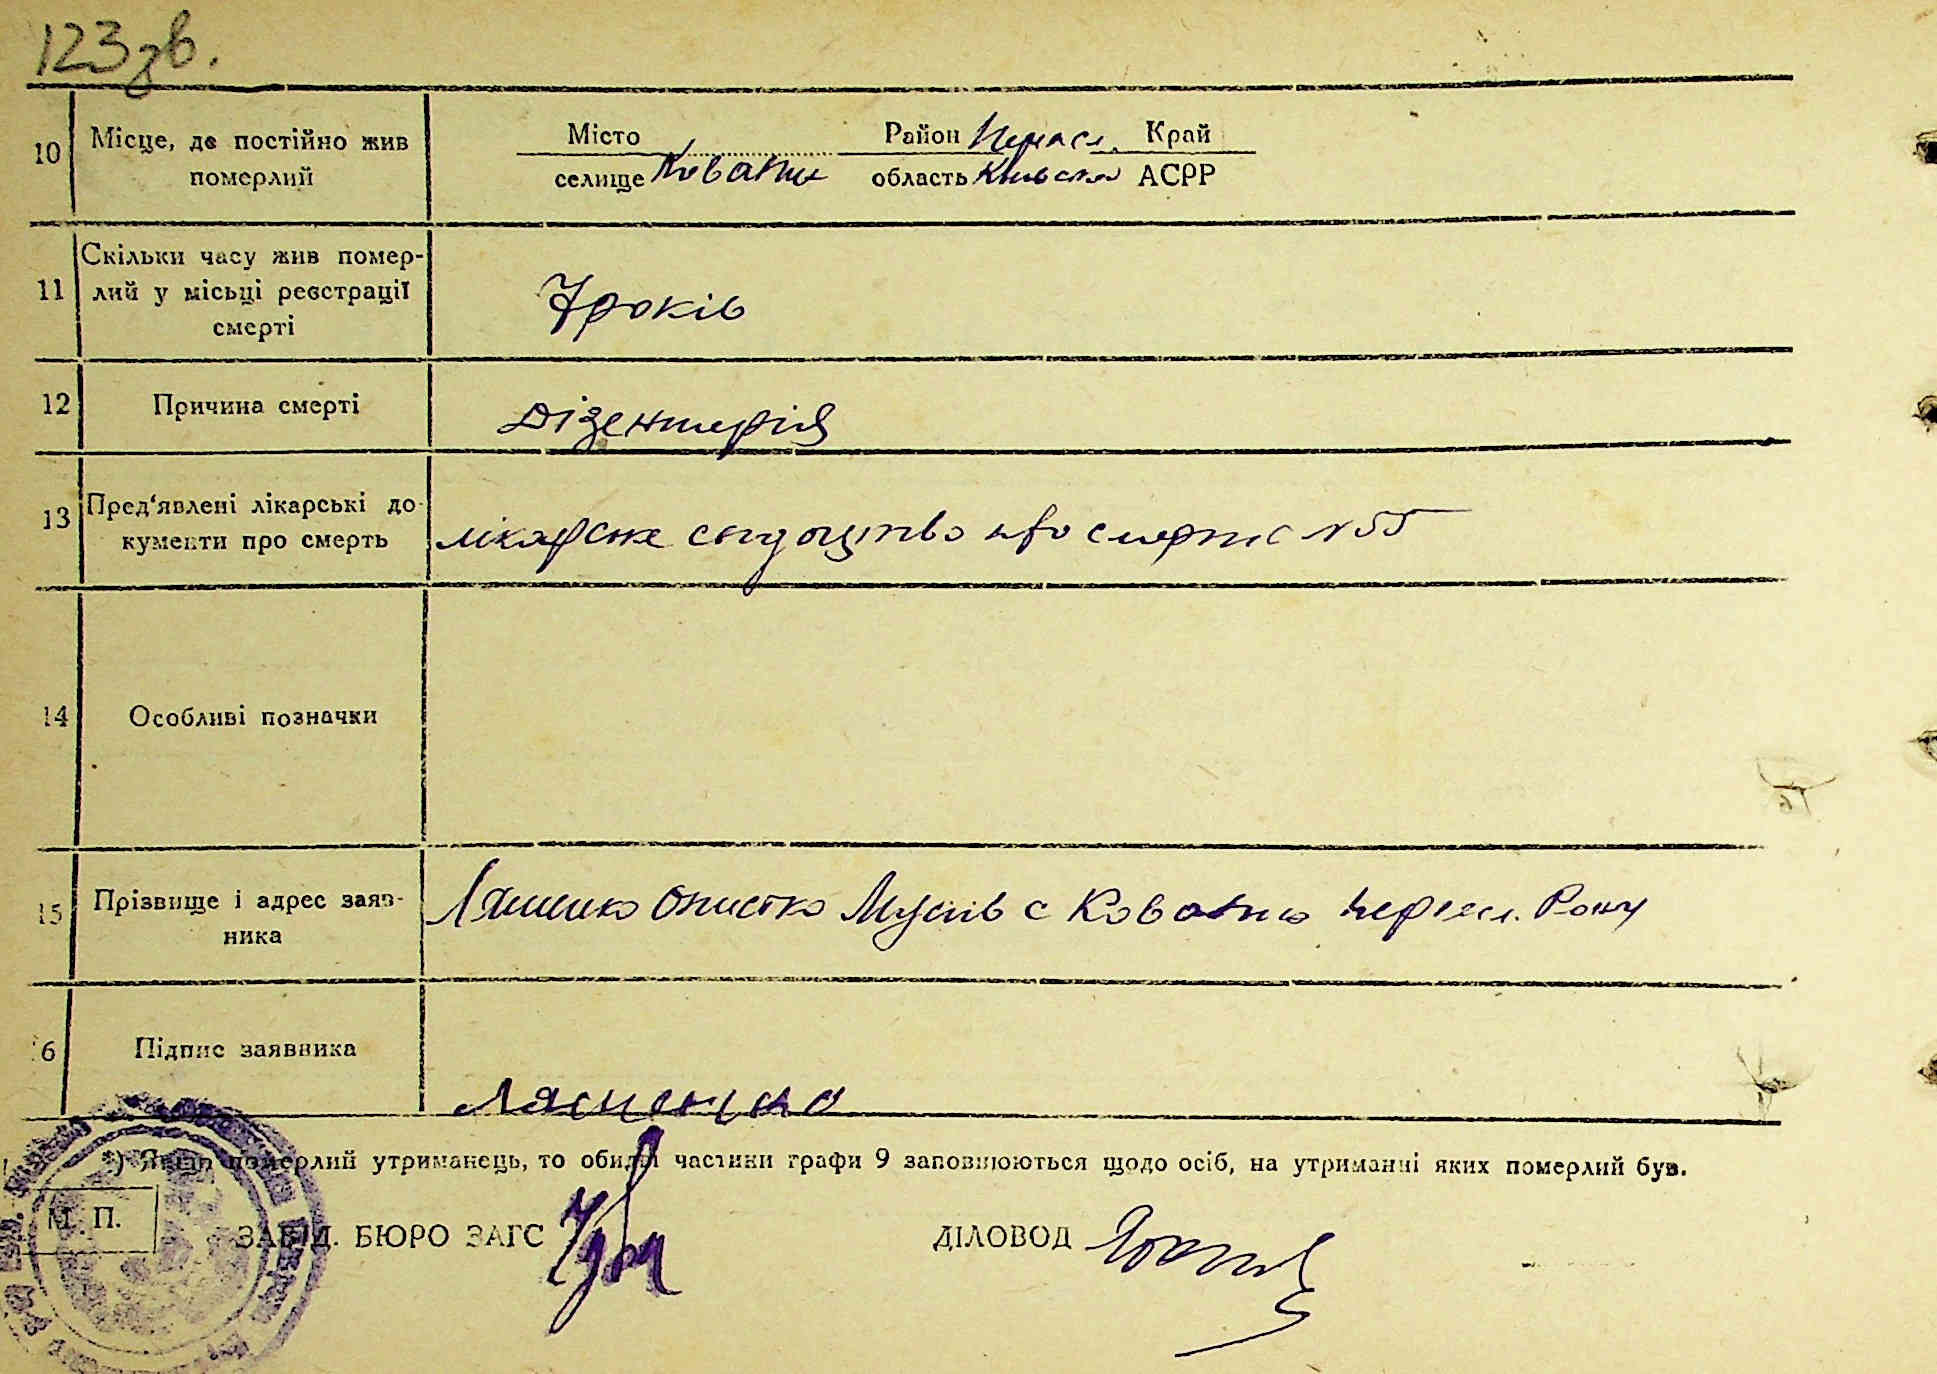 123 зв.
10 Місце, де постійно жив померлий
Місто Район Переясл. Край
селище Ковалин область Київська АСРР
11 Скільки часу жив помер-
лий у місьці реєстрації
смерті
7 років
12 Причина смерті
Дізентерія
13 Пред‘явлені лікарські до-
кументи про смерть
лікарське свідоцтво про смерть № 55
14 Особливі позначки
15 Прізвище і адрес заяв-
ника
Ляшенко Онистко с Ковалин Переясл. Рону
16 Підпис заявника
Ляшенко
*) Якщо померлий утриманець, то обидві частини графи 9 заповнюються щодо осіб, на утриманні яких померлий був.
М. П.
ЗАВІД. БЮРО ЗАГС
ДІЛОВОД